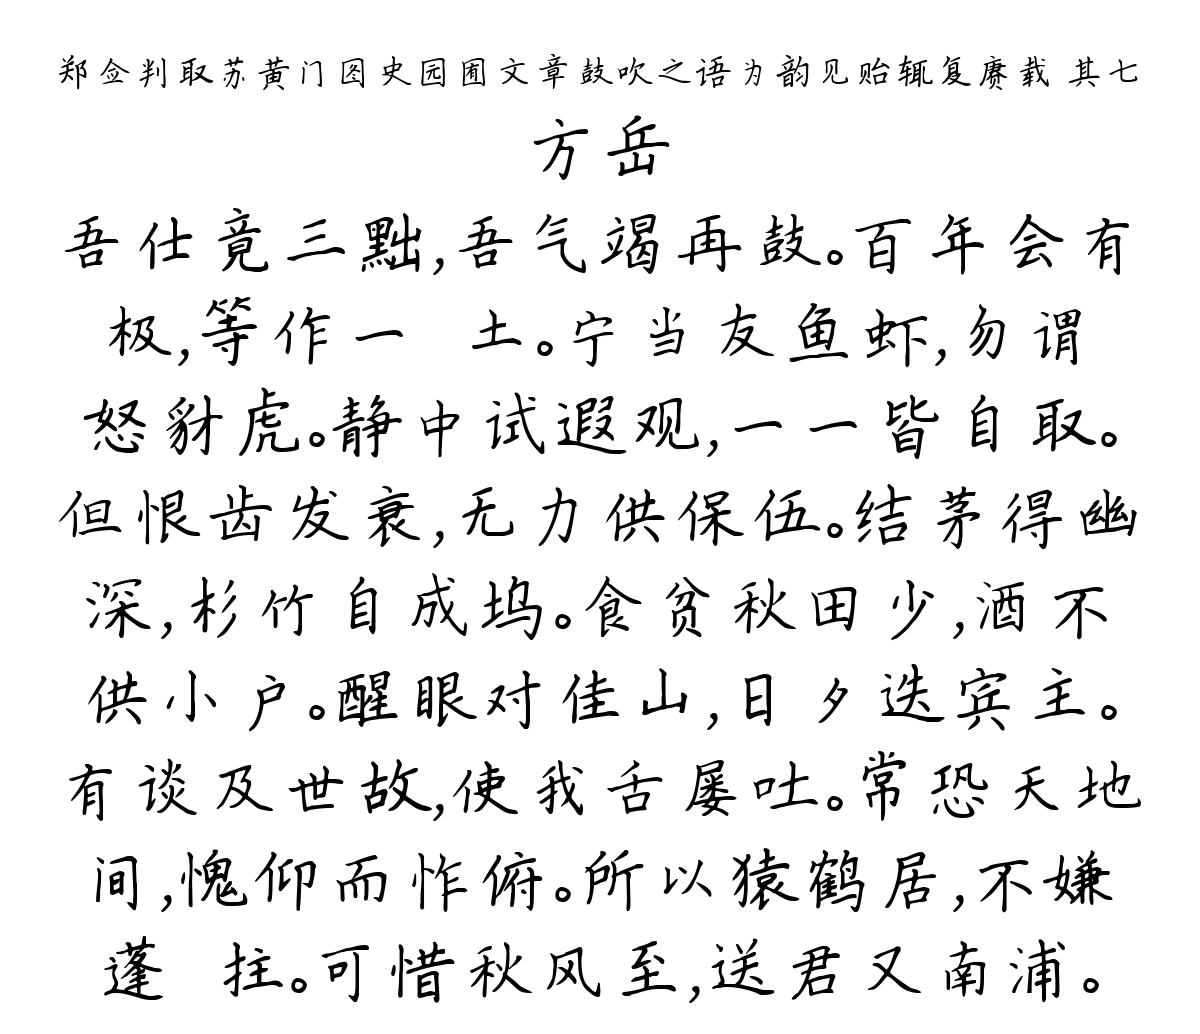 郑佥判取苏黄门图史园囿文章鼓吹之语为韵见贻辄复赓载 其七
方岳
吾仕竟三黜,吾气竭再鼓。百年会有
极,等作一 土。宁当友鱼虾,勿谓
怒豺虎。静中试遐观,一一皆自取。
但恨齿发衰,无力供保伍。结茅得幽
深,杉竹自成坞。食贫秋田少,酒不
供小户。醒眼对佳山,日夕迭宾主。
有谈及世故,使我舌屡吐。常恐天地
间,愧仰而怍俯。所以猿鹤居,不嫌
蓬 拄。可惜秋风至,送君又南浦。